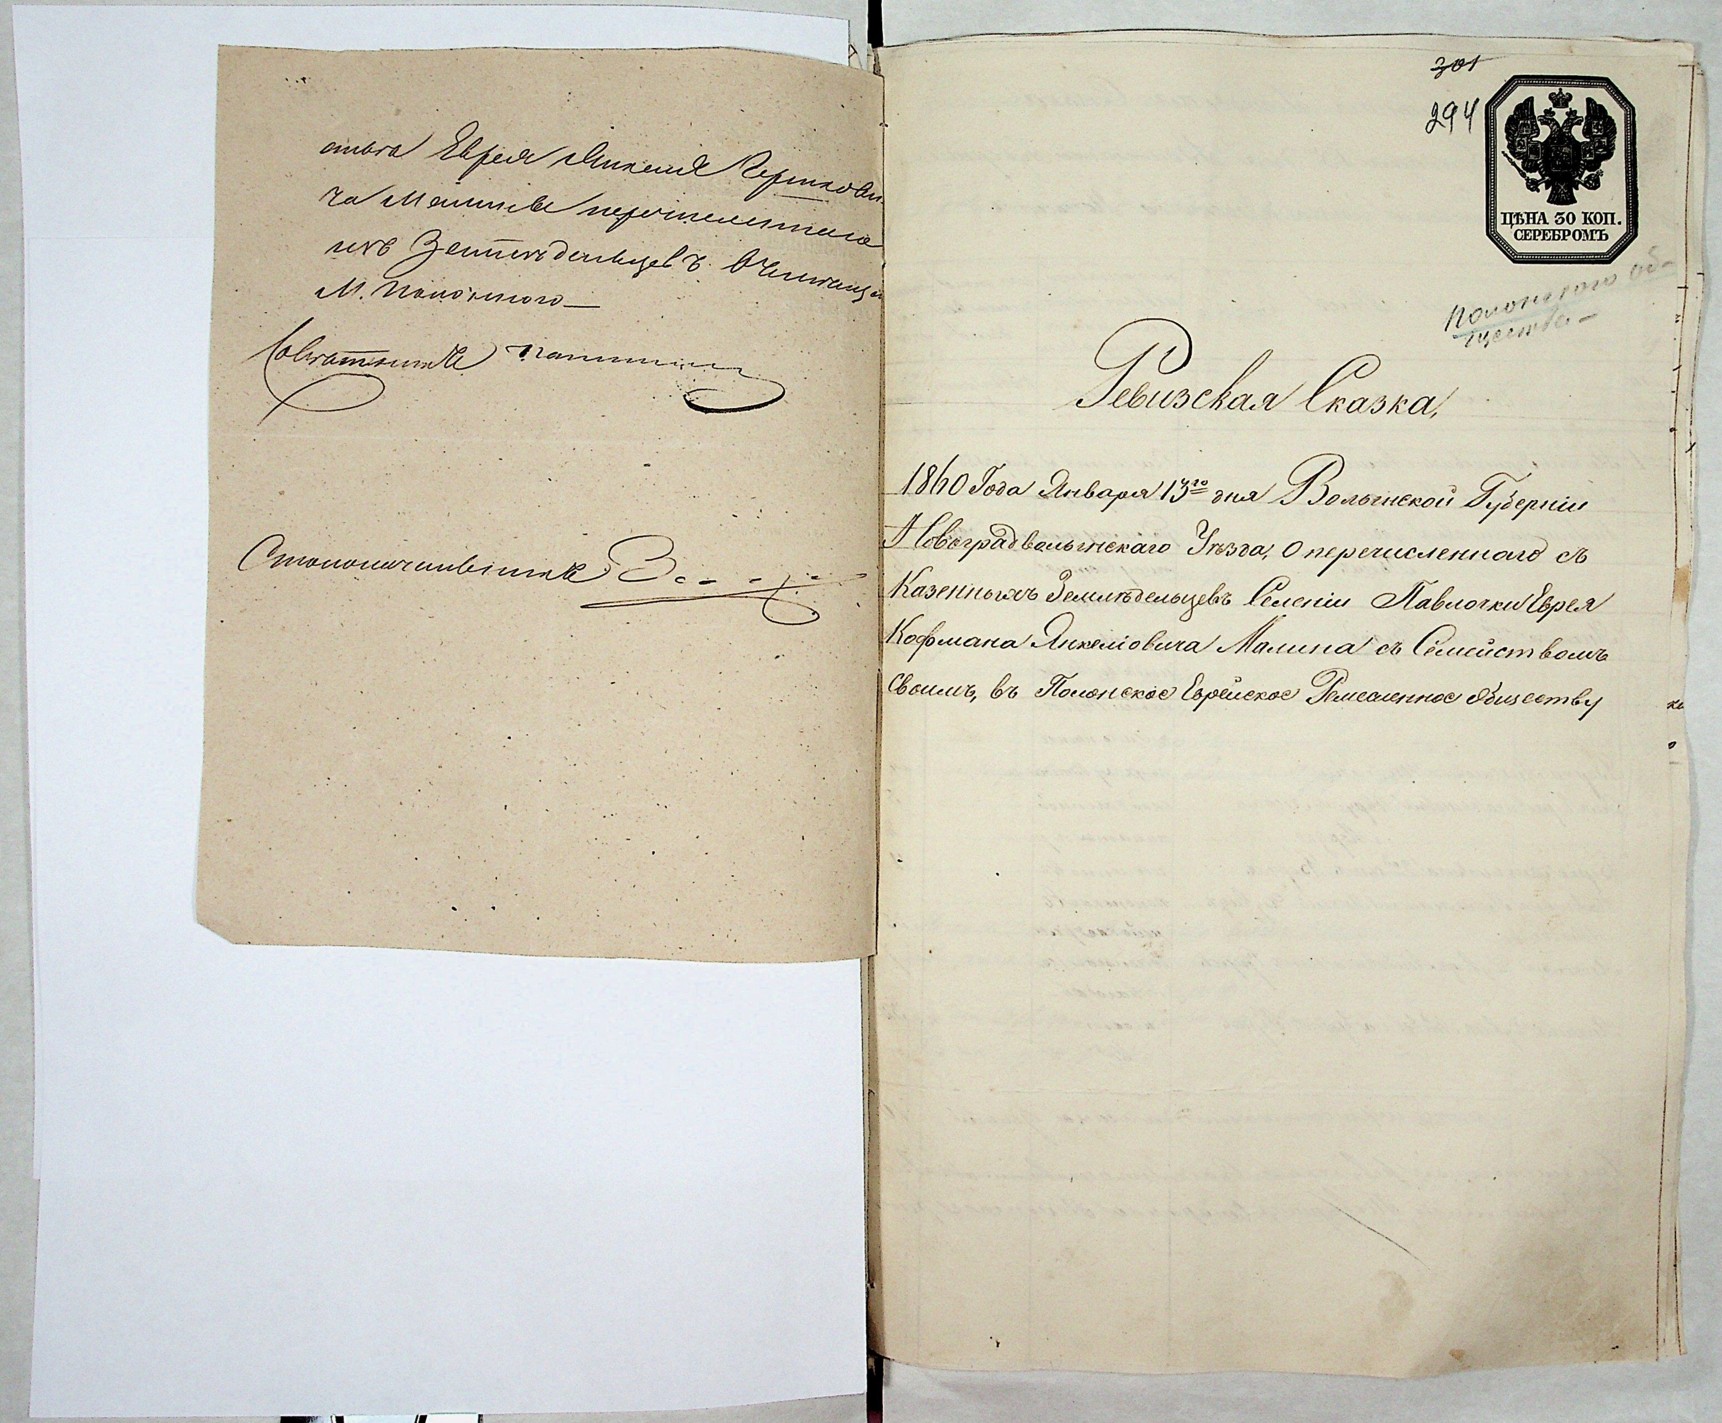 ства Еврея Янкеля Гершкови
ча Малина перечисленнаго
изъ Земледельцевъ в
М. Полонного
Советникъ
Столоначальникъ
301
294
ЦѢНА 30 КОП.
СЕРЕБРОМЪ
Полонского об-
щества-
Ревизская Сказка,
1860 Года Января 13го дня Волынской Губерніи
Новоградволынскаго Уѣзда, о перечисленномъ съ
Казенныхъ Землѣдельцевъ Селеніи Павлочки Еврея
Кофмана Янкеліовича Малина съ Семействомъ
своимъ, въ Полонское Еврейское Ремесленное Обществу